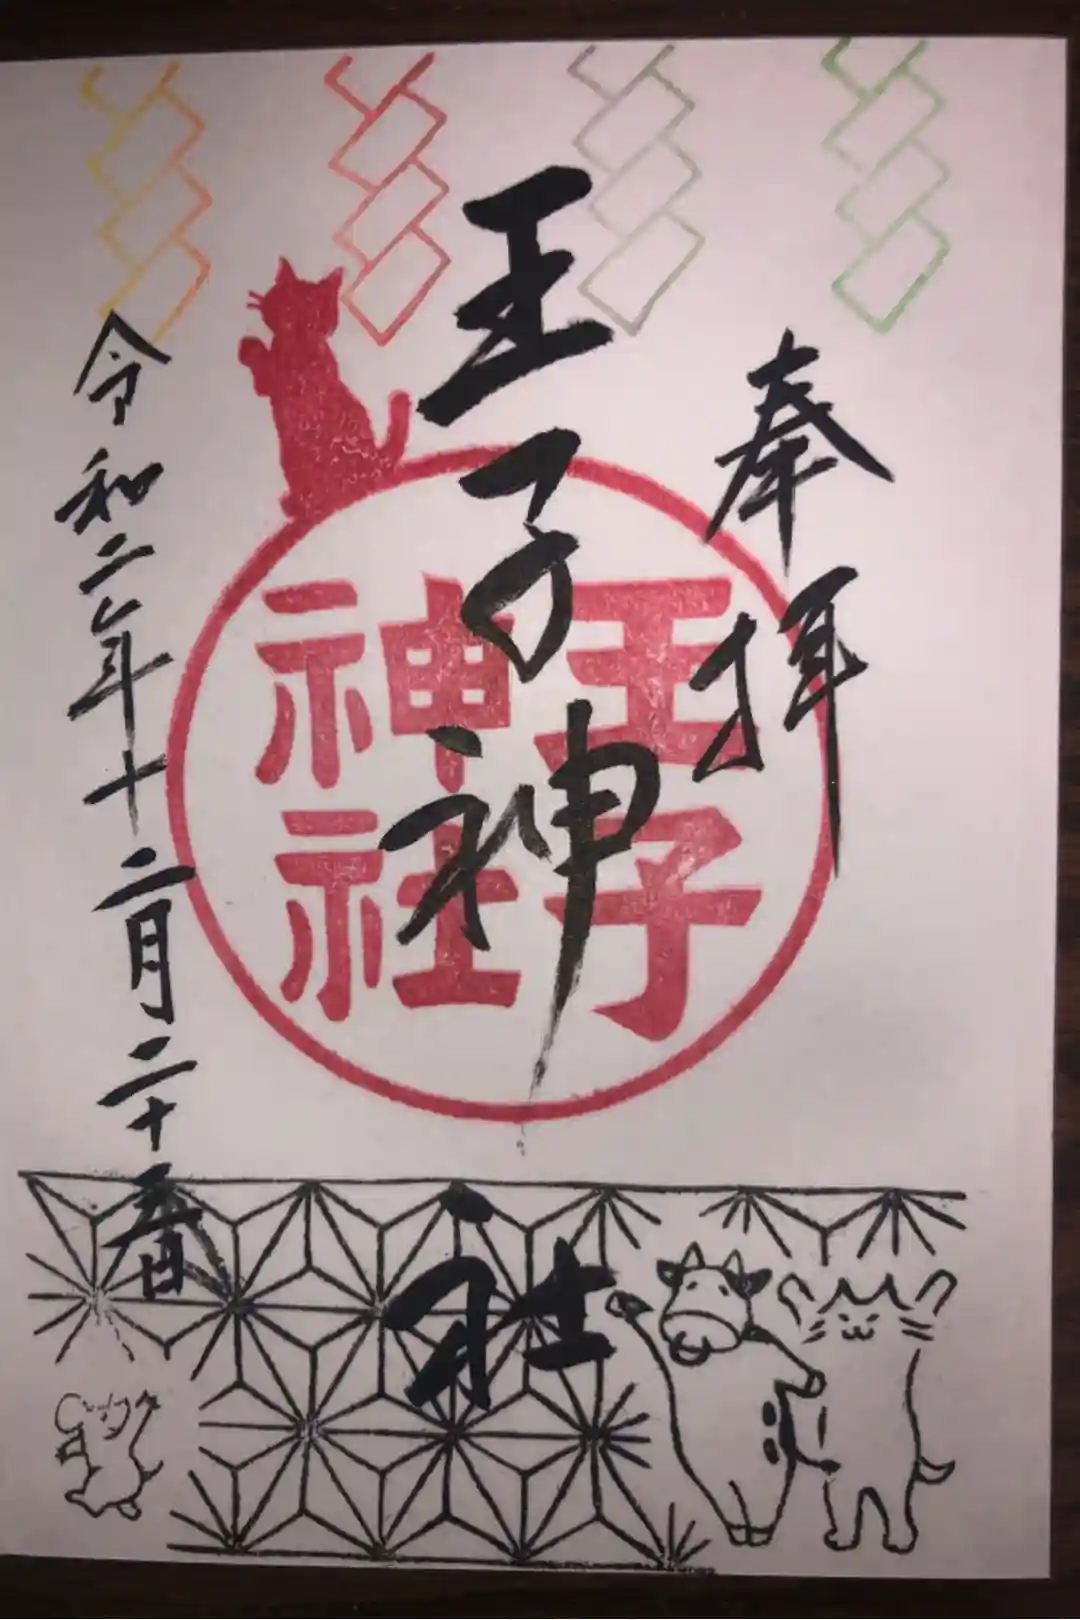 奉拝
王子神社
王子
神社
令和二年十二月二十五日